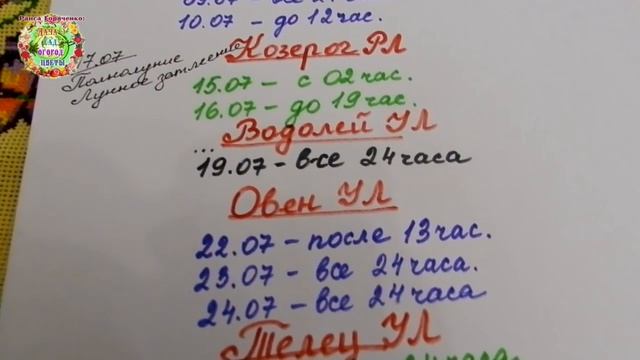 Раиса Горяченко:
ДАЧА
САД
ОГОРОД
ЦВЕТЫ
10.07 - до 12 час.
Козерог РЛ
17.07
Полнолуние
Лунное затмение
15.07 - с 02 час.
16.07 - до 19 час.
... Водолей УЛ
19.07 - все 24 часа
Овен УЛ
22.07 - после 13 час.
23.07 - все 24 часа.
24.07 - все 24 часа
Телец УЛ